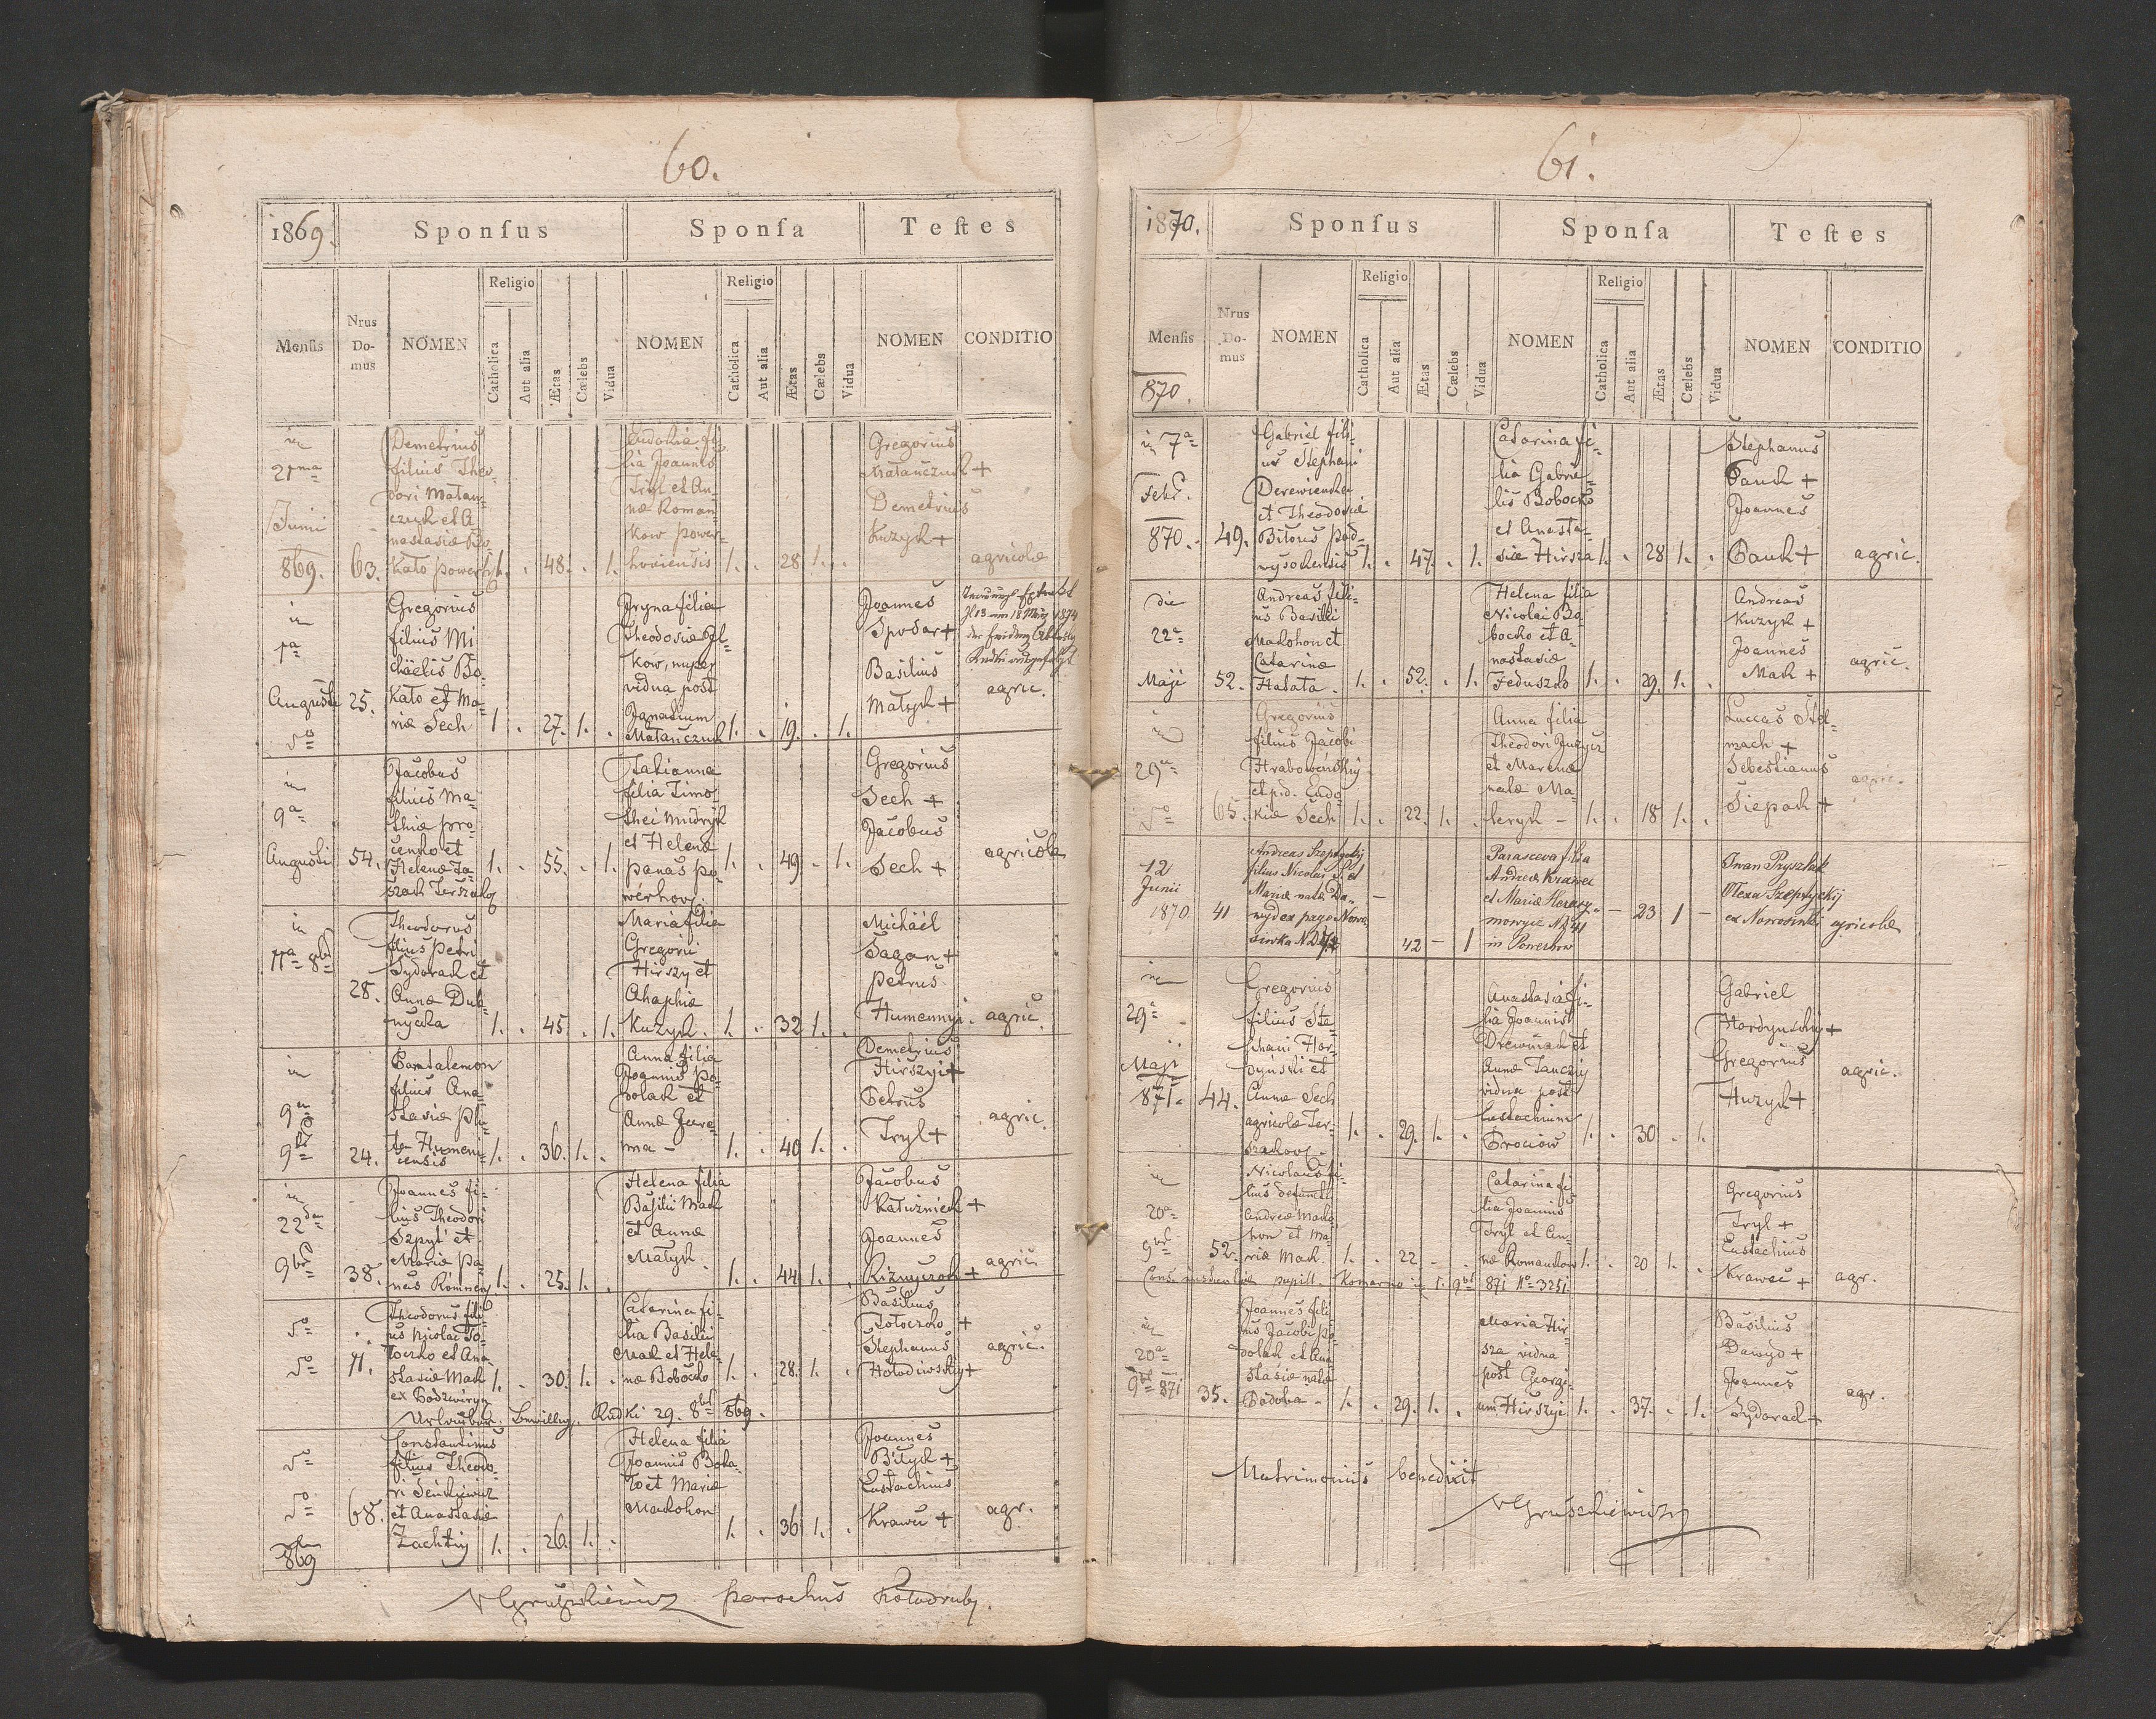 60.
1869.
Sponſus
Sponſa
Teſtes
Menſis
Nrus Domus
NOMEN
Religio
Catholica
Aut alia
Ætas
Cælebs
Vidua
NOMEN
Religio
Catholica
Aut alia
Ætas
Cælebs
Vidua
NOMEN
CONDITIO
in
21ma
Junii
869.
63.
Demetrius
filius Theo-
dori Matan-
czuk et A-
nastasiæ Bo-
kało
1. . 48. . 1.
Eudokia fi-
lia Joannis
Tryl et An-
næ Roman-
kow power-
hoviensis
1. . 28 1. .
Gregorius
Matańczuk +
Demetrius
Kuzyk +
agricolæ
in
1a
Augusti
25.
Gregorius
filius Mi-
chäelis Bo-
kało et Ma-
riæ Sech
1 . 27. 1. .
Jryna filia
Theodosiæ Jl-
ków, nuper
vidua post
Jgnatium
Matańczuk
1. . 19. . 1.
Joannes
Spodar +
Basilius
Matyk +
agric.
in
9a
Augusti
54.
Jacobus
filius Ma-
thiæ Pro-
cenko et
Helenæ
1. . 55. . 1.
Tatianna
filia Timo-
thei Mudryk
et Helenæ
panas po-
werhov.
1. . 49 . 1.
Gregorius
Sech +
Jacobus
Sech +
agricolæ
in
11a 8bris
28.
Theodorus
filius Petri
Sydorak et
Annæ Dub-
nycka
1. . 45. . 1.
Maria filia
Gregorii
Hirszy et
Ahaphiæ
Kuzyk.
1. . 32 1. .
Michäël
Sagan +
Petrus
Humennyi.
agric.
in
9a
9bris
24.
Pantalemon
filius Ana-
stasiæ
1. . 36. 1. .
Anna filia
Joannis Po-
polak et
Annæ Gere-
ma -
1. . 40 1. .
Demetrius
Hirszyi +
Petrus
Tryl +
agric.
in
22da
9bris
38.
Joannes fi-
lius Theodori
Szpyt' et
Mariæ Pa-
nas Romnen
1. . 25. 1. .
Helena filia
Basilii Mach
et Annæ
Matyk.
1. . 44 1. .
Jacobus
Kałużniack +
Joannes
Riznyczok +
agric.
do
do
71.
Theodorus fili-
us Nicolai To-
łoczko et Ana-
stasiæ Mach
1. . 30. 1. .
Catarina fi-
lia Basilii
Mak et Hele-
næ Boboćko
1. . 28. 1. .
Basilius
Tołoczko +
Stephanus
Hołodiwskiy +
agric.
Rudki 29. 8br 869.
do
do
869
68.
Constantinus
filius Theodo-
ri Senkiewicz
et Anastasiæ
Zachtiy
1. . 26. 1. .
Helena filia
Joannis Boka-
ło et Mariæ
Makohon
1. . 36 1. .
Joannes
Bityck +
Eustachius
Krawci +
agr.
NGruszkiewicz parochus Kołodruby.
61.
1870.
Sponſus
Sponſa
Teſtes
Menſis
Nrus Domus
NOMEN
Religio
Catholica
Aut alia
Ætas
Cælebs
Vidua
NOMEN
Religio
Catholica
Aut alia
Ætas
Cælebs
Vidua
NOMEN
CONDITIO
870.
in 7a
Febr.
870.
49.
Gabriel fili-
us Stephani
Derewienka
et Theodosiæ
Bitous pod-
wysokensis
1. . 47. . 1.
Catarina fi-
lia Gabrie-
lis Bobocko
et Anasta-
siæ Hirsza
1. . 28 1. .
Stephanus
Pauk +
Joannes
Pauk +
agric.
die
22a
Maji
52.
Andreas fili-
us Basilii
Makohon et
Catarinæ
Hałata.
1. . 52. . 1.
Helena filia
Nicolai Bo-
bocko et A-
nastasiæ
Feduszko
1. . 29. 1. .
Andreas
Kuzyk +
Joannes
Mach +
agric.
in
29a
do
65.
Gregorius
filius Jacobi
Hrabowenskiy
et p.d. Eudo-
kiæ Sech
1. . 22. 1. .
Anna filia
Theodori Juzycz
et Marenæ
natæ Ma-
leryk -
1. . 18 1. .
Luccas Stel-
mach +
Sebestianus
Siepack +
agric.
12
Junii
1870
41
Andreas Szeptycky
filius Nicolai S. et
Mariæ natæ Da-
wyd ex pago Nowo-
siwka
42 - 1
Parasceva filia
Andreæ Krawec
et Mariæ Herasy-
mowycz ND 41
in Powerhow
- 23 1 -
Iwan Pryszlak
Olexa Szeptyckij
ex Nowosiulki
agricolæ
in
29a
Maji
871.
44.
Gregorius
filius Ste-
phani Hor-
dyński et
Annæ Sech
agricolæ Ter-
szakov.
1. . 29. 1. .
Anastasia fi-
lia Joannis
Drewniak et
Annæ Janciy
vidua post
Eustachium
Prociow
1. . 30 . 1.
Gabriel
Hordynskiy +
Gregorius
Huzyk +
agric.
in
20a
9br
52.
Nicolaus fi-
lius defuncti
Andreæ Mako-
hon et Ma-
riæ Mach.
1. . 22 . .
Catarina fi-
lia Joannis
Tryl et An-
næ Romankow
1. . 20 1. .
Gregorius
Tryl +
Eustachius
Krawec +
agr.
pupill. Komarno 1. 9br 871 No 3251.
in
20a
9br 871
35.
Joannes fili-
us Jacobi Po-
polak et Ana-
stasiæ natæ
Badowa -
1. . 29. 1. .
Maria Hir-
sza vidua
post Georgi-
um Hirszyi
1. . 37. . 1.
Basilius
Dawyd +
Joannes
Sydorack +
agr.
Matrimoniis benedixit
NGruszkiewicz